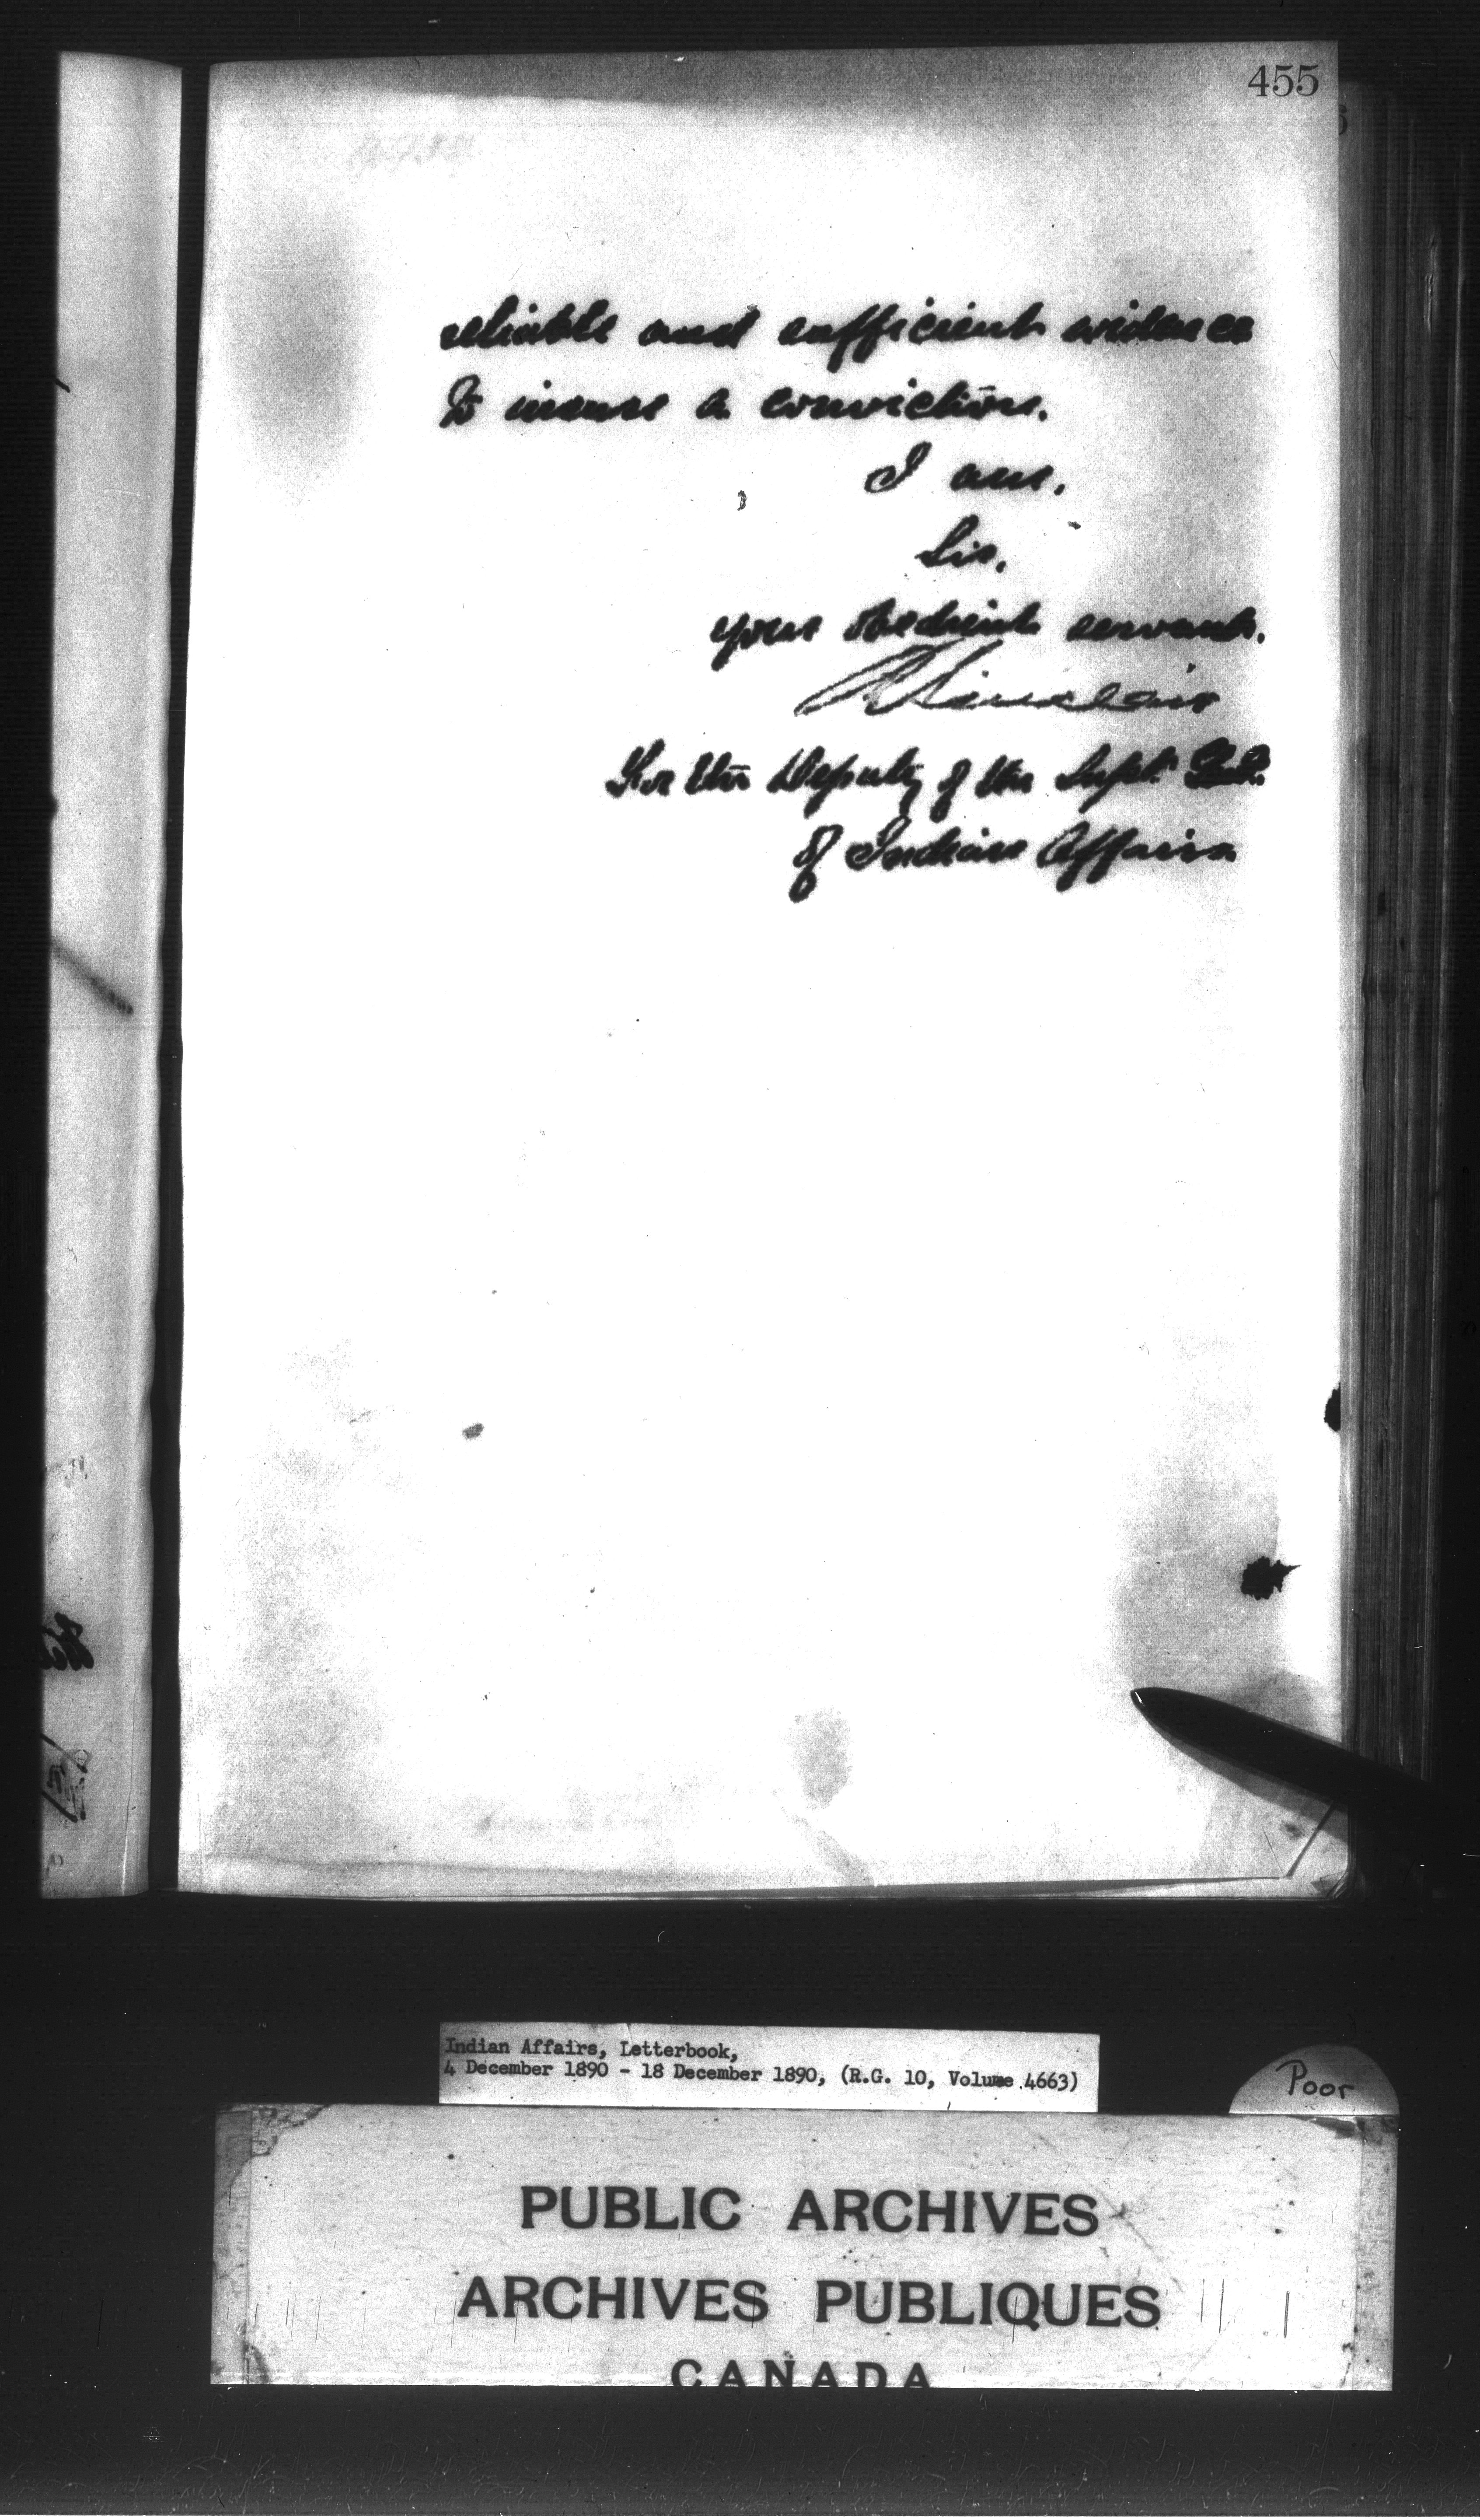 455
reliable and sufficient evidence
to insure a conviction.
I am.
Sir,
your obedient servant.
R Sinclair
For the Deputy of the Supt. Genl.
of Indian Affairs
Indian Affairs, Letterbook,
4 December 1890 - 18 December 1890, (R.G. 10, Volume 4663)
Poor
PUBLIC ARCHIVES
ARCHIVES PUBLIQUES
CANADA